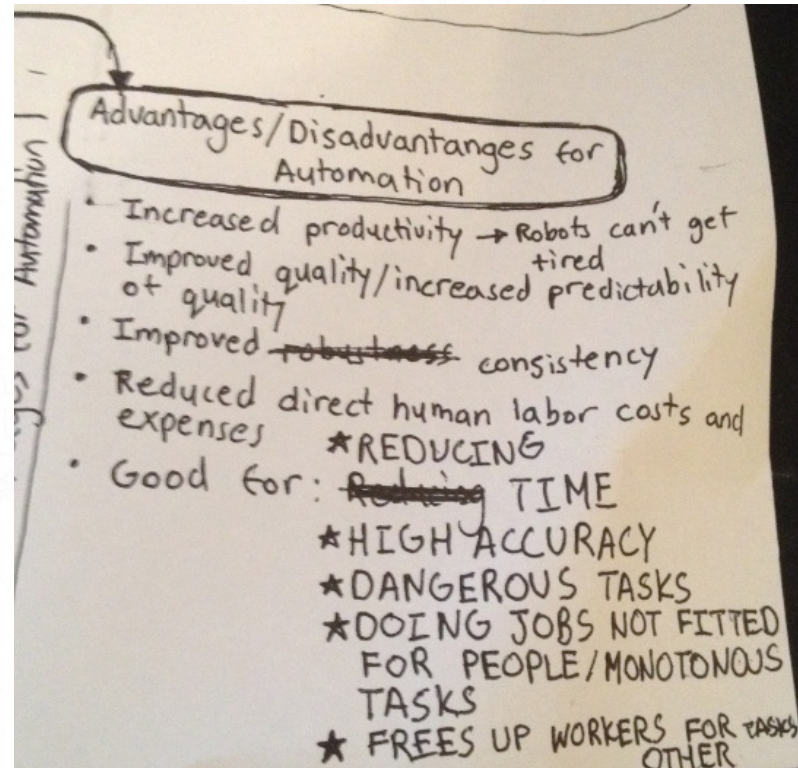 Advantages/Disadvantanges for
Automation
• Increased productivity → Robots can't get
tired
• Improved quality/increased predictability
of quality
• Improved robustness consistency
• Reduced direct human labor costs and
expenses
★REDUCING
• Good for: Reducing TIME
★HIGH ACCURACY
★DANGEROUS TASKS
★DOING JOBS NOT FITTED
FOR PEOPLE/MONOTONOUS
TASKS
★ FREES UP WORKERS FOR TASKS
OTHER
for Automation